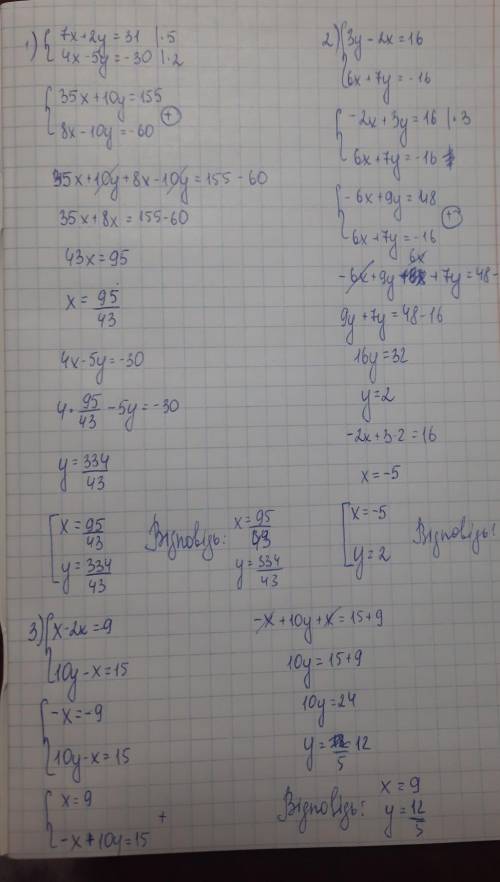 1) { 7x+2y=31 |·5
4x-5y=-30 |·2
{ 35x+10y=155
8x-10y=-60 (+)
35x+10y+8x-10y=155-60
35x+8x=155-60
43x=95
x=95/43
4x-5y=-30
4·95/43-5y=-30
y=334/43
[ x=95/43
y=334/43
Відповідь: x=95/43
y=334/43
2) { 3y-2x=16
6x+7y=-16
{ -2x+3y=16 |·3
6x+7y=-16
{ -6x+9y=48
6x+7y=-16 (+)
-6x+9y+6x+7y=48-
9y+7y=48-16
16y=32
y=2
-2x+3·2=16
x=-5
[ x=-5
y=2
Відповідь:
3) { x-2x=9
10y-x=15
{ -x=-9
10y-x=15
{ x=9
-x+10y=15 +
-x+10y+x=15+9
10y=15+9
10y=24
y=12/5
Відповідь: x=9
y=12/5